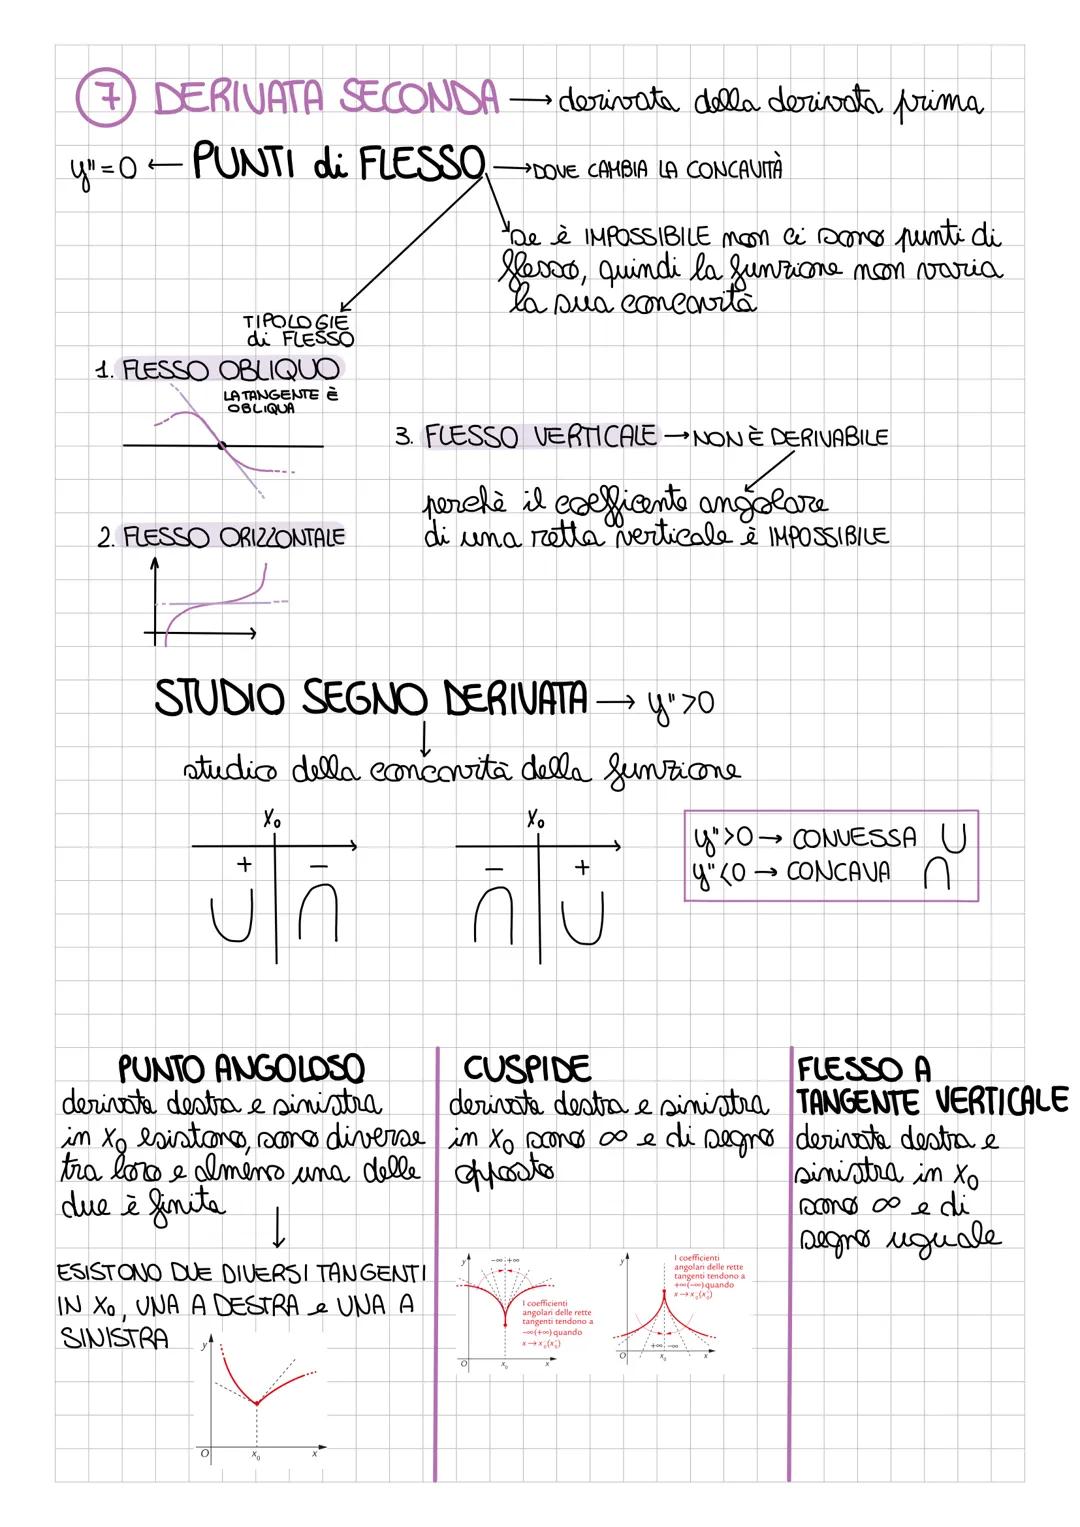 7 DERIVATA SECONDA → derivata della derivata prima
y"=0 ← PUNTI di FLESSO → DOVE CAMBIA LA CONCAVITÀ
Se è IMPOSSIBILE non ci sono punti di
flesso, quindi la funzione non varia
la sua concavità
TIPOLOGIE
di FLESSO
1. FLESSO OBLIQUO
LA TANGENTE È
OBLIQUA
3. FLESSO VERTICALE → NON È DERIVABILE
perchè il coefficente angolare
di una retta verticale è IMPOSSIBILE
2. FLESSO ORIZZONTALE
STUDIO SEGNO DERIVATA → y">0
studio della concavità della funzione
X₀
+ −
X₀
− +
y">0 → CONVESSA ∪
y"<0 → CONCAVA ∩
PUNTO ANGOLOSO
derivata destra e sinistra
in X₀ esistono, sono diverse
tra loro e almeno una delle
due è finita
ESISTONO DUE DIVERSI TANGENTI
IN X₀, UNA A DESTRA e UNA A
SINISTRA
y
O x₀ x
CUSPIDE
derivata destra e sinistra
in X₀ sono ∞ e di segno
opposto
y
−∞ +∞
I coefficienti
angolari delle rette
tangenti tendono a
−∞(+∞) quando
x→x₀⁻(x₀⁺)
O x₀ x
y
I coefficienti
angolari delle rette
tangenti tendono a
+∞(−∞) quando
x→x₀⁻(x₀⁺)
+∞ −∞
O x₀ x
FLESSO A
TANGENTE VERTICALE
derivata destra e
sinistra in X₀
sono ∞ e di
segno uguale